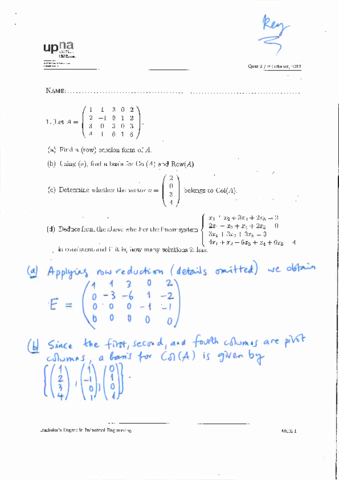 Key
upna
NAME:
1. Let A = ( 1 1 3 0 2
2 -1 0 1 2
3 0 3 0 3
4 1 6 1 6 ).
(a) Find a (row) echelon form of A.
(b) Using (a), find a basis for Col(A) and Row(A)
(c) Determine whether the vector v = ( 2 0 3 4 ) belongs to Col(A).
(d) Deduce from the above whether the linear system
is consistent and if it is, how many solutions it has.
(a) Applying row reduction (details omitted) we obtain
E = ( 1 1 3 0 2
0 -3 -6 1 -2
0 0 0 -1 -1
0 0 0 0 0 )
(b) Since the first, second, and fourth columns are pivot
columns, a basis for Col(A) is given by
{ ( 1 2 3 4 ), ( 1 -1 0 1 ), ( 0 1 0 1 ) }.
Bachelor's Degree in Industrial Engineering